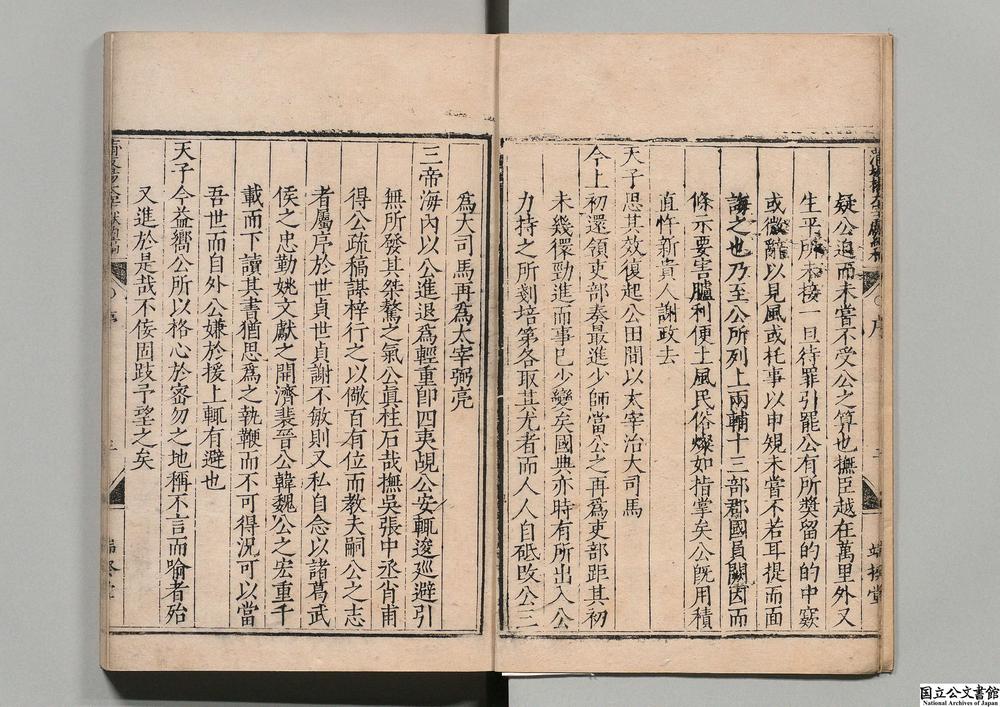 疑公迫而未嘗不受公之算也撫臣越在萬里外又
生平所未接一旦待罪引罷公有所獎留的的中窽
或微辭以見風或托事以申規未嘗不若耳提而面
誨之也乃至公所列上兩輔十三部郡國員闕因而
條示要害臚利便土風民俗燦如指掌矣公旣用積
直忤新貴人謝政去
天子思其效復起公田間以太宰治大司馬
今上初還領吏部春最進少師當公之再爲吏部距其初
未幾獧勁進而事已少變矣國典亦時有所出入公
力持之所剗培第各取其尤者而人人自砥改公三
爲大司馬再爲太宰弼亮
三帝海內以公進退爲輕重卽四夷覘公安輒逡廵避引
無所發其桀驁之氣公眞柱石哉撫吳張中丞肖甫
得公疏稿謀梓行之以儆百有位而教夫嗣公之志
者屬序於世貞世貞謝不敏則又私自念以諸葛武
侯之忠勤姚文獻之開濟裴晉公韓魏公之宏重千
載而下讀其書猶思爲之執鞭而不可得況可以當
吾世而自外公嫌於援上輒有避也
天子今益嚮公所以格心於密勿之地稱不言而喻者殆
又進於是哉不佞固跂予望之矣
序
三
国立公文書館
National Archives of Japan